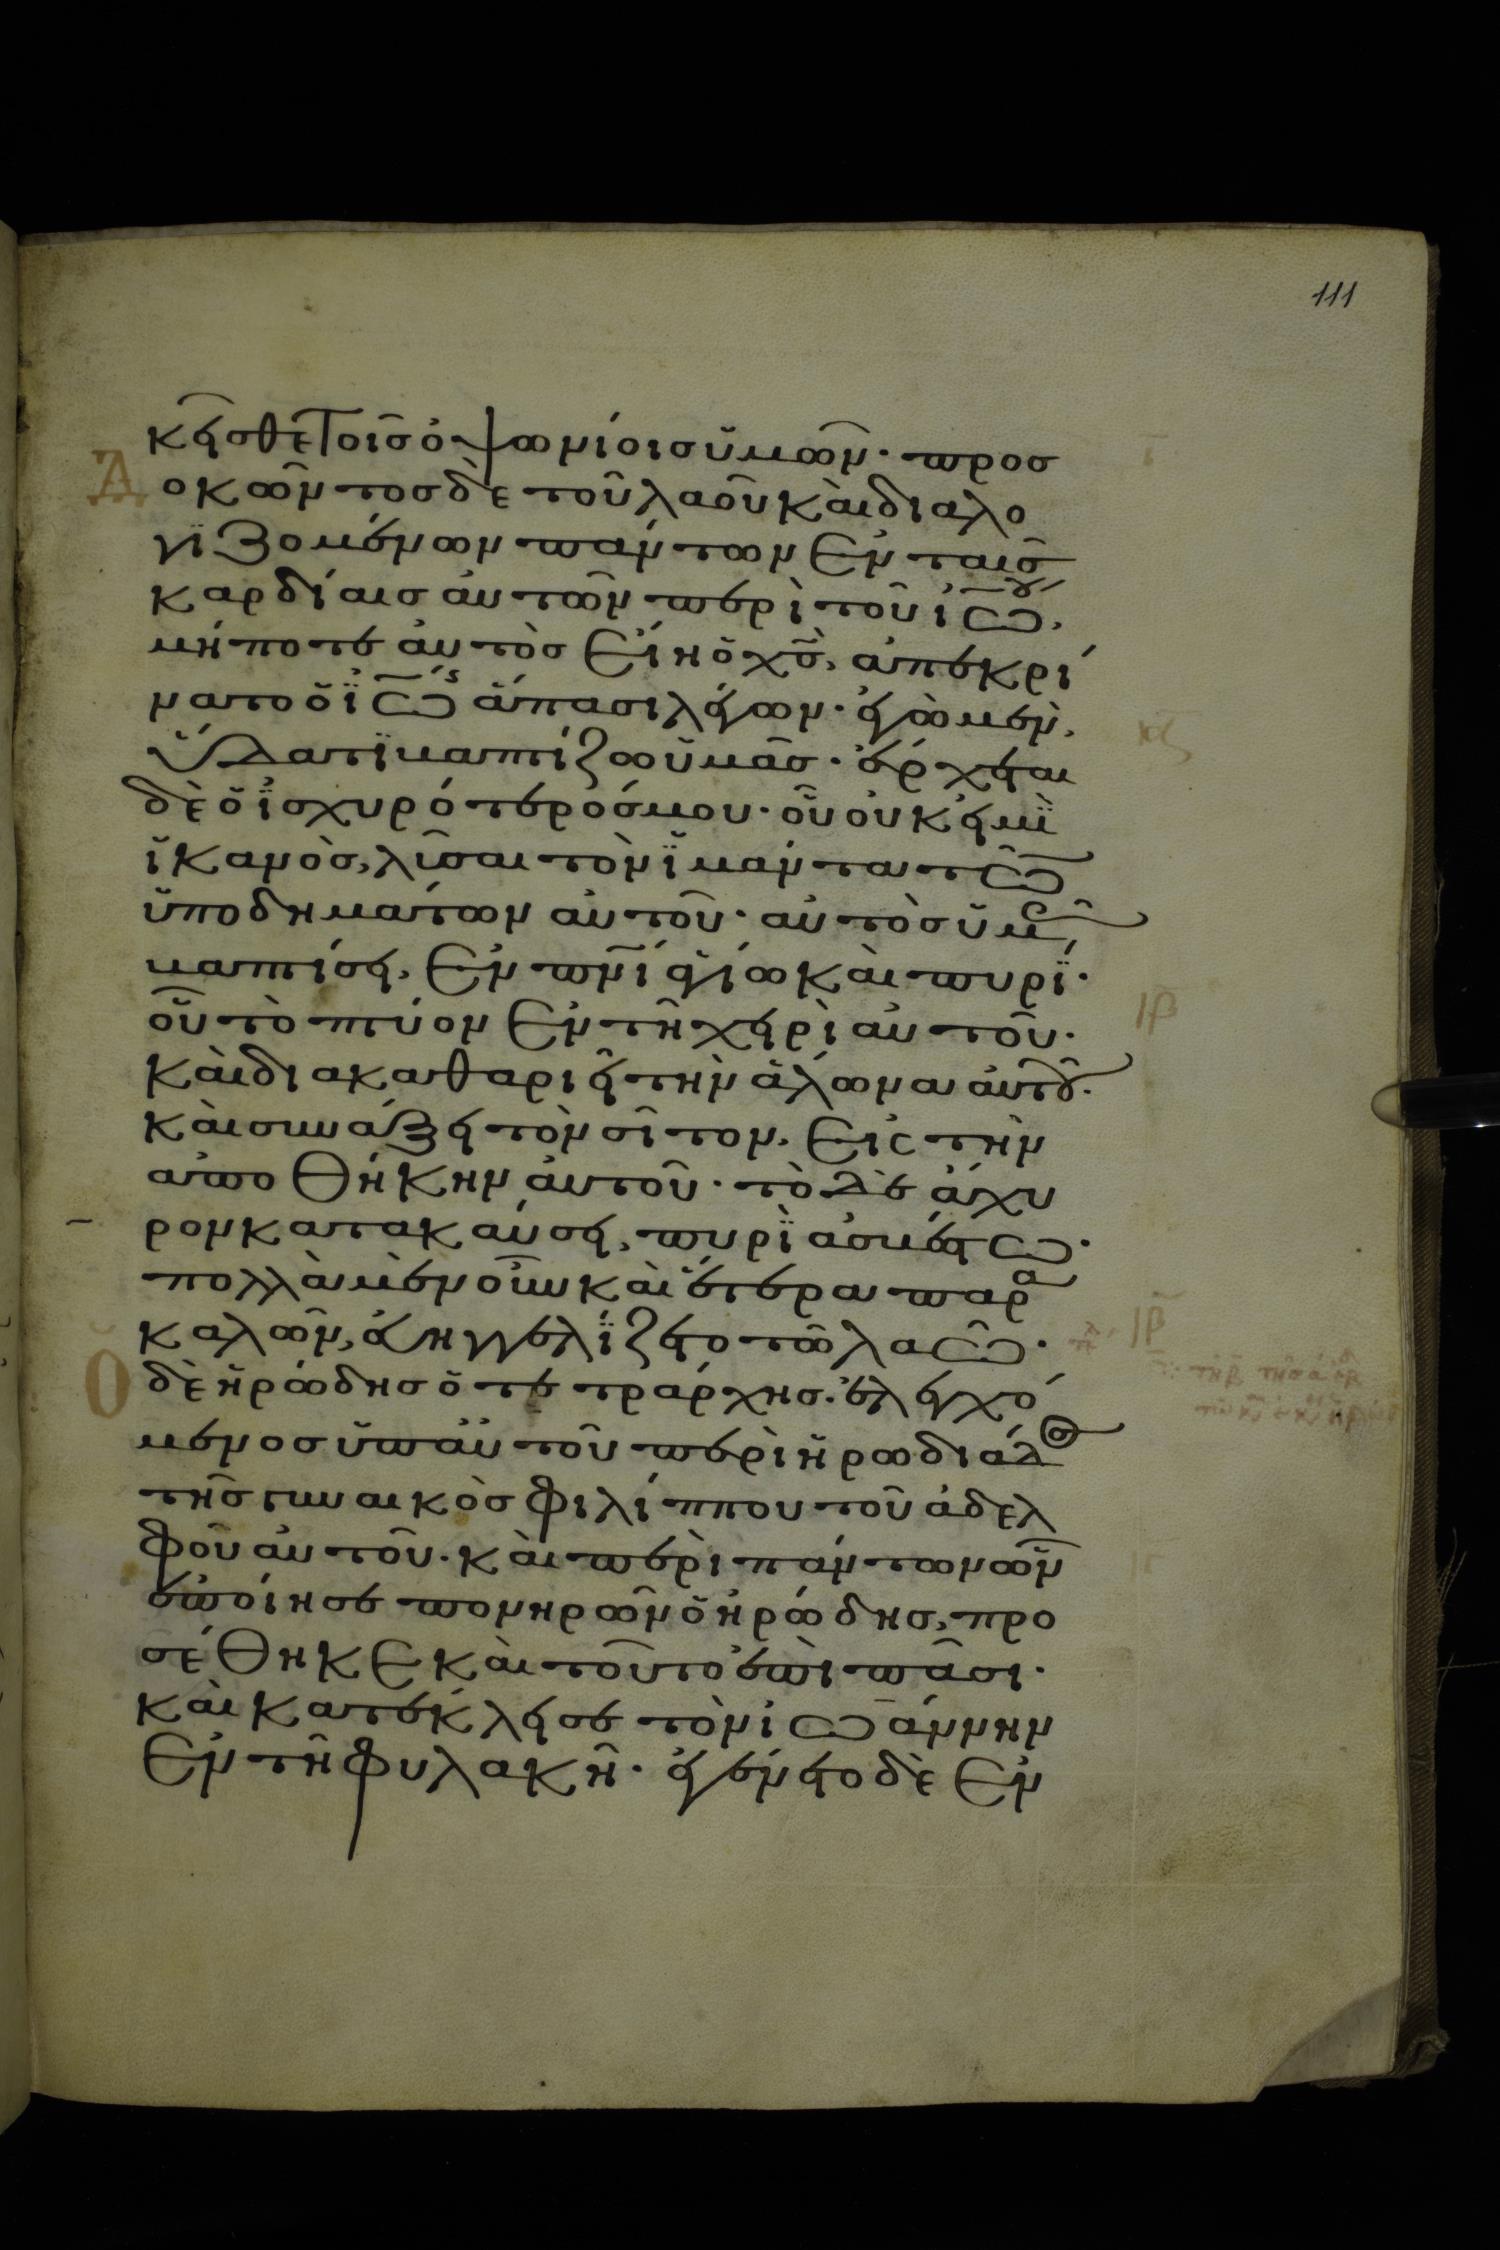 111
κεῖσθε τοῖσ ὀψωνίοισ ὑμῶν· προσ
δοκῶντοσ δὲ τοῦ λαοῦ καὶ διαλο
γϊζομένων πάντων ἐν ταῖσ
καρδίαισ αὐτῶν περὶ τοῦ ἰω̅ου,
μήποτε αὐτὸσ εἴη ὁ χ̅σ̅, ἀπεκρί
νατο ὁ ϊω̅σ ἅπασι λέγων· ἐγὼ μὲν,
ὕδατϊ βαπτίζω ὑμᾶσ· ἔρχεται
δὲ ὁ ἰσχυρότερόσ μου· οὗ οὐκ εἰμῒ
ἱκανὸσ, λῦσαι τὸν ἱμάντα τῶ
ὑποδημάτων αὐτοῦ· αὐτὸσ ὑμᾶς
βαπτίσει, ἐν π̅ν̅ι ἁγίω καὶ πυρΐ·
οὗ τὸ πτύον ἐν τῆ χειρὶ αὐτοῦ·
καὶ διακαθαριεῖ τὴν ἅλωνα αὐτοῦ·
καὶ συνάξει τὸν σῖτον, εἰς τὴν
ἀποθήκην αὐτοῦ· τὸ δὲ ἄχυ
ρον κατακαύσει, πυρῒ ἀσβέστω·
πολλὰ μὲν οὖν καὶ ἕτερα παρα
καλῶν, εὐηγγελΐζετο τῶ λαῶ·
Ὁ δὲ ἡρώδησ ὁ τετράρχησ· ἐλεγχό
μενοσ ὑπ' αὐτοῦ περὶ ἡρωδιάδοσ
τῆσ γυναικὸσ φιλίππου τοῦ ἀδελ
φοῦ αὐτοῦ· καὶ περὶ πάντων ὧν
ἐποίησε πονηρῶν ὁ ἡρώδησ, προ
σέθηκε καὶ τοῦτο ἐπὶ πᾶσι·
καὶ κατέκλεισε τὸν ἰω̅άννην
ἐν τῆ φυλακῆ· ἐγένετο δὲ ἐν